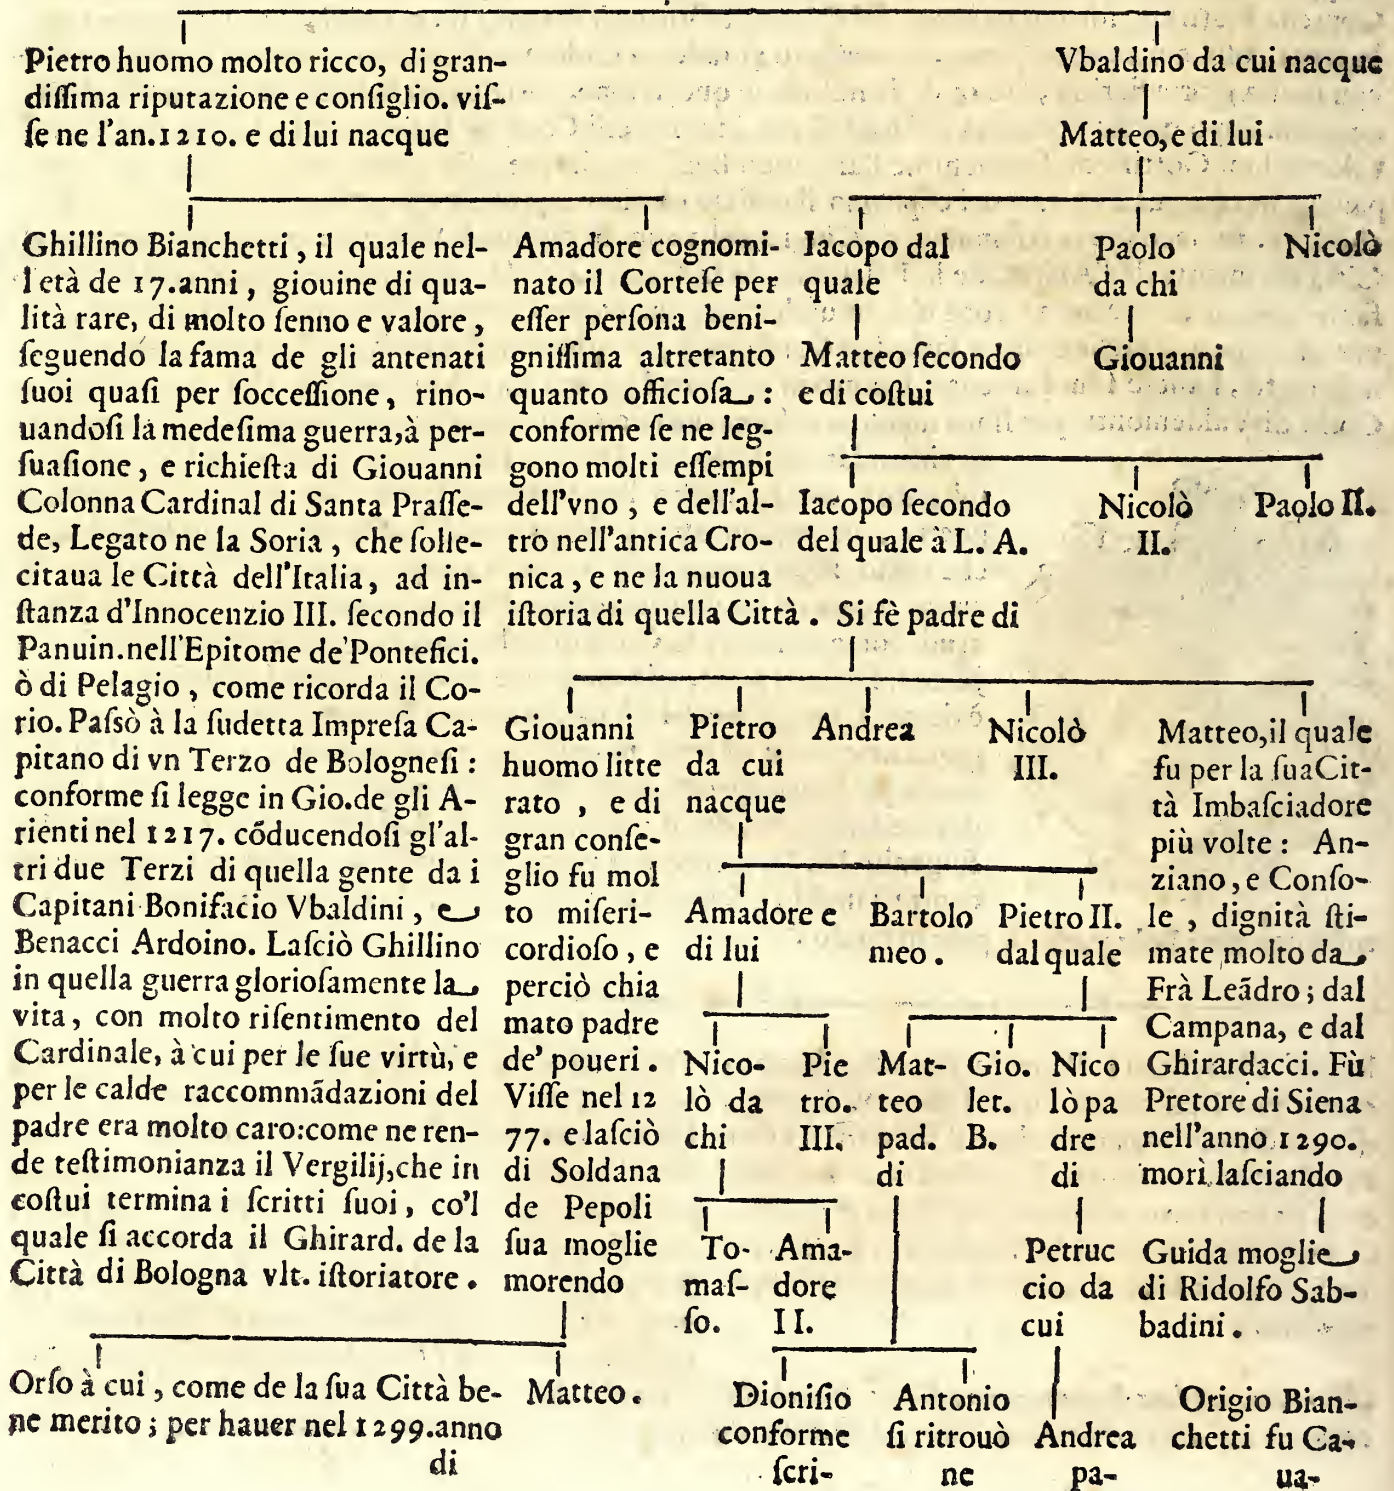 Pietro huomo molto ricco, di gran-
diſſima riputazione e conſiglio. viſ-
ſe ne l'an.1210. e di lui nacque
Vbaldino da cui nacque
Matteo, e di lui
Ghillino Bianchetti, il quale nel-
l età de 17.anni, giouine di qua-
lità rare, di molto ſenno e valore,
ſeguendo la fama de gli antenati
ſuoi quaſi per ſocceſſione, rino-
uandoſi la medeſima guerra, à per-
ſuaſione, e richieſta di Giouanni
Colonna Cardinal di Santa Praſſe-
de, Legato ne la Soria, che ſolle-
citaua le Città dell'Italia, ad in-
ſtanza d'Innocenzio III. ſecondo il
Panuin.nell'Epitome de'Pontefici.
ò di Pelagio, come ricorda il Co-
rio. Paſsò à la ſudetta Impreſa Ca-
pitano di vn Terzo de Bologneſi:
conforme ſi legge in Gio.de gli A-
rienti nel 1217. cõducendoſi gl'al-
tri due Terzi di quella gente da i
Capitani Bonifacio Vbaldini, e
Benacci Ardoino. Laſciò Ghillino
in quella guerra glorioſamente la
vita, con molto riſentimento del
Cardinale, à cui per le ſue virtù, e
per le calde raccommãdazioni del
padre era molto caro:come ne ren-
de teſtimonianza il Vergilij,che in
coſtui termina i ſcritti ſuoi, co'l
quale ſi accorda il Ghirard. de la
Città di Bologna vlt. iſtoriatore.
Amadore cognomi-
nato il Corteſe per
eſſer perſona beni-
gniſſima altretanto
quanto officioſa:
conforme ſe ne leg-
gono molti eſſempi
dell'vno, e dell'al-
tro nell'antica Cro-
nica, e ne la nuoua
iſtoria di quella Città. Si fè padre di
Iacopo dal
quale
Paolo
da chi
Nicolò
Matteo ſecondo
e di coſtui
Giouanni
Iacopo ſecondo
del quale à L. A.
Nicolò
II.
Paolo II.
Giouanni
huomo litte
rato, e di
gran conſe-
glio fu mol
to miſeri-
cordioſo, e
perciò chia
mato padre
de' poueri.
Viſſe nel 12
77. e laſciò
di Soldana
de Pepoli
ſua moglie
morendo
Pietro
da cui
nacque
Andrea
Nicolò
III.
Matteo,il quale
fu per la ſua Cit-
tà Imbaſciadore
più volte: An-
ziano, e Conſo-
le, dignità ſti-
mate molto da
Frà Leãdro; dal
Campana, e dal
Ghirardacci. Fù
Pretore di Siena
nell'anno 1290.
morì laſciando
Amadore e
di lui
Bartolo
meo.
Pietro II.
dal quale
Nico-
lò da
chi
Pie
tro.
III.
Mat-
teo
pad.
di
Gio.
let.
B.
Nico
lò pa
dre
di
To-
maſ-
ſo.
Ama-
dore
II.
Petruc
cio da
cui
Guida moglie
di Ridolfo Sab-
badini.
Orſo à cui, come de la ſua Città be-
ne merito; per hauer nel 1299.anno
di
Matteo.
Dioniſio
conforme
ſcri-
Antonio
ſi ritrouò
ne
Andrea
pa-
Origio Bian-
chetti fu Ca-
ua-